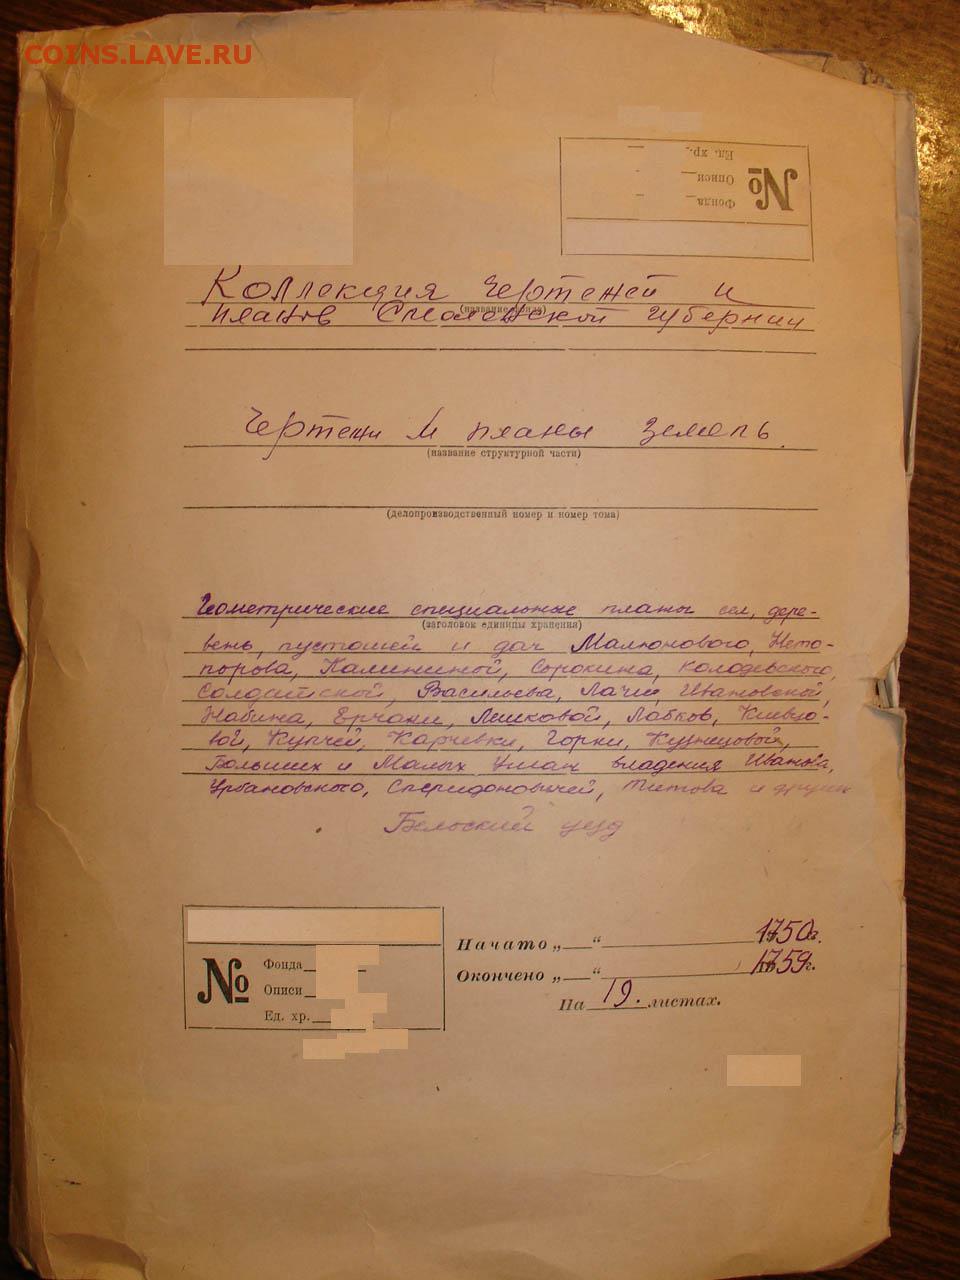 COINS.LAVE.RU
№
Фонда
Описи
Ед. хр.
Коллекция чертежей и
(название фонда)
планов Смоленской губернии
Чертежи и планы земель.
(название структурной части)
(делопроизводственный номер и номер тома)
Геометрические специальные планы сел, дере-
(заголовок единицы хранения)
вень, пустошей и дач Малюнового, Нето-
порова, Калининой, Сорокина, Колодевского,
Солдатской, Васильева, Лачи, Ивановской,
Набина, Ерчаки, Лешковой, Лабков, Клевцо-
вой, Купчей, Карчевки, Горки, Кузнецовой,
Больших и Малых владения Иванка,
Урбановского, Спиридоновичей, Титова и других
Бельский уезд
№
Фонда
Описи
Ед. хр.
Начато „ “ 1750г.
Окончено „ “ 1759г.
На 19. листах.